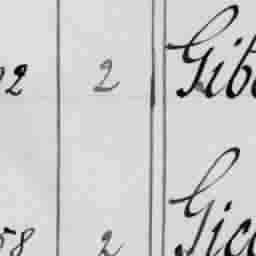 2 2 Gib
58 2 Gic